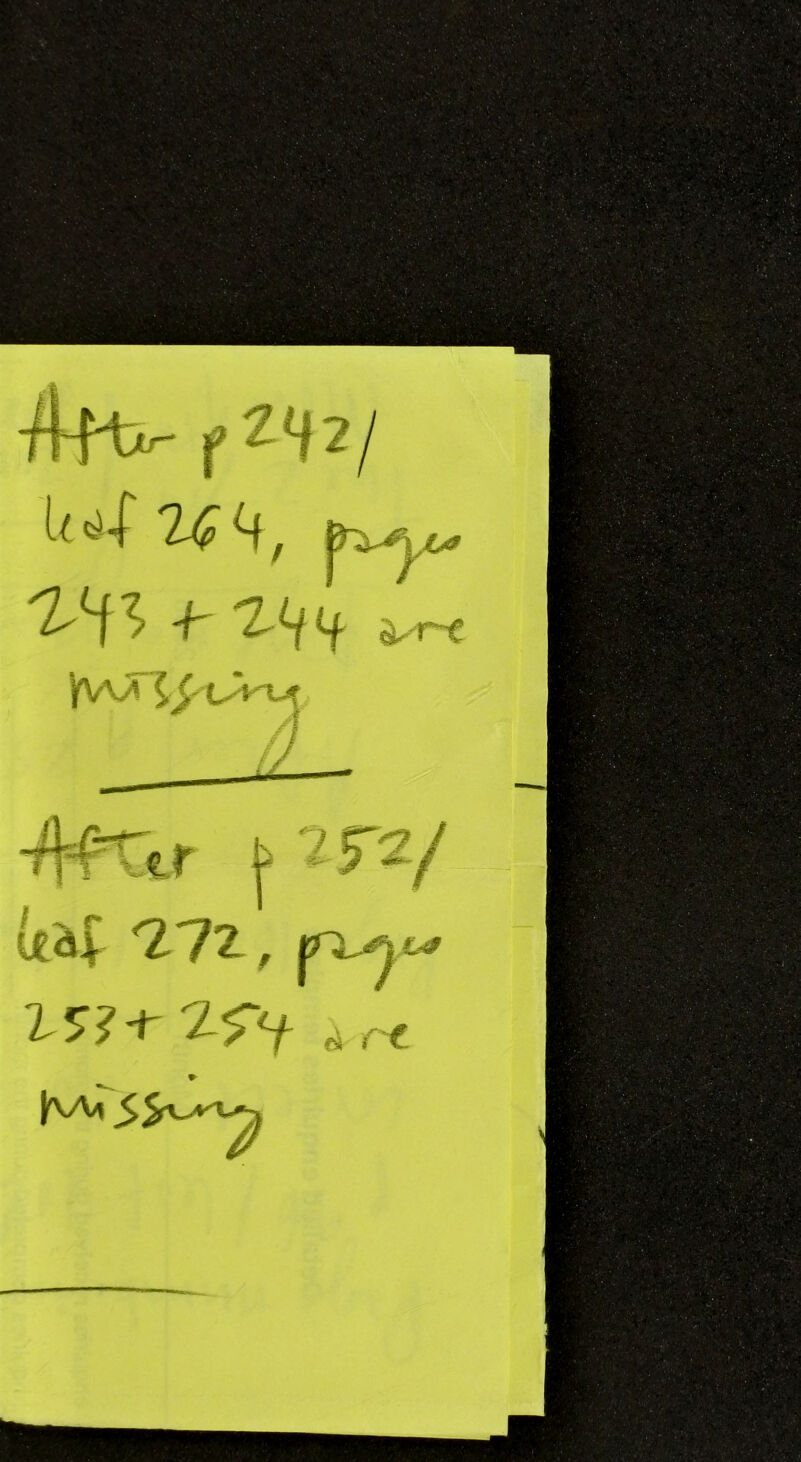 After p 242/
leaf 264, pages
243 + 244 are
missing
After p 252/
leaf 272, pages
253 + 254 are
missing